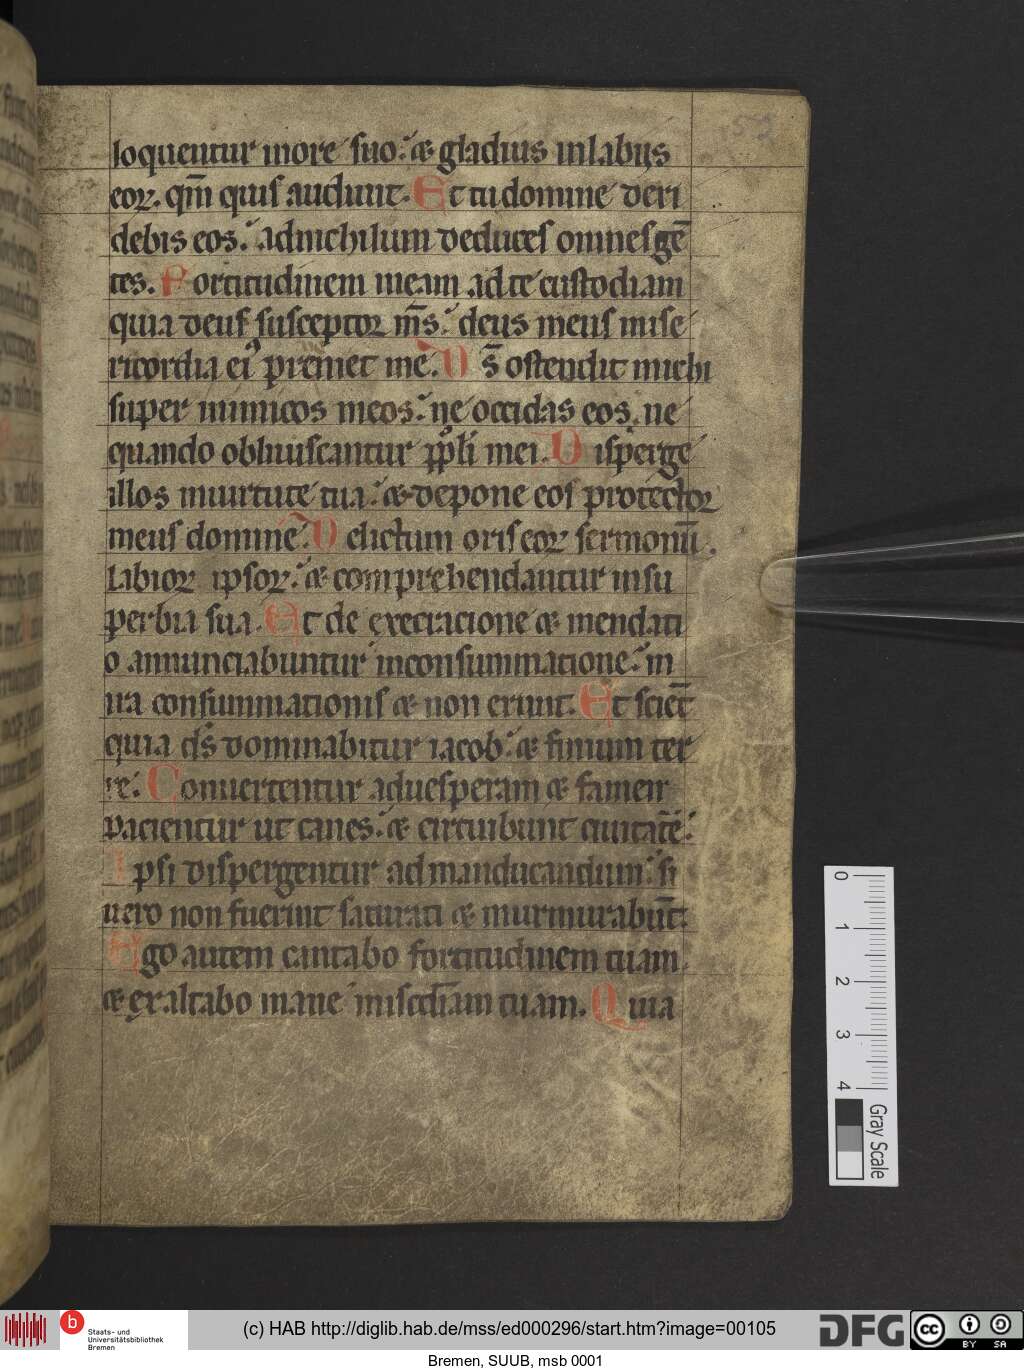 loquentur inore suo: & gladius inlabijs
eorꝝ. qm̄ quis audiunt. Et tu domine deri
debis eos: adnichilum deduces omnes gē
tes. Fortitudinem meam ad te custodiam
quia deus susceptor m̄s: deus meus mise
ricordia eiꝰ premet me. Ds̄ ostendit michi
super inimicos meos: ne occidas eos. ne
quando obliuiscantur ppl̄i mei. Disperge
illos inuirtute tua: & depone eos protector
meus domine. Delictum oris eoꝝ sermonū.
labioꝝ ipsoꝝ: & comprehendantur insu
perbia sua. Et de execracione & mendaci
o annunciabuntur inconsummacione: in
ira consummationis & non erunt. Et sciēt
quia ds̄ dominabitur iacob: & finium ter
re: Conuertentur aduesperam & famem
pacientur ut canes: & circuibunt ciuitatē:
Ipsi dispergentur ad manducandum: si
uero non fuerint saturati & murmurabūt:
Ego autem cantabo fortitudinem tuam.
& exaltabo mane misc̄diam tuam. Quia
0
1
2
3
4
Gray Scale
b
Staats- und
Universitätsbibliothek
Bremen
(c) HAB http://diglib.hab.de/mss/ed000296/start.htm?image=00105
DFG
cc
BY SA
Bremen, SUUB, msb 0001